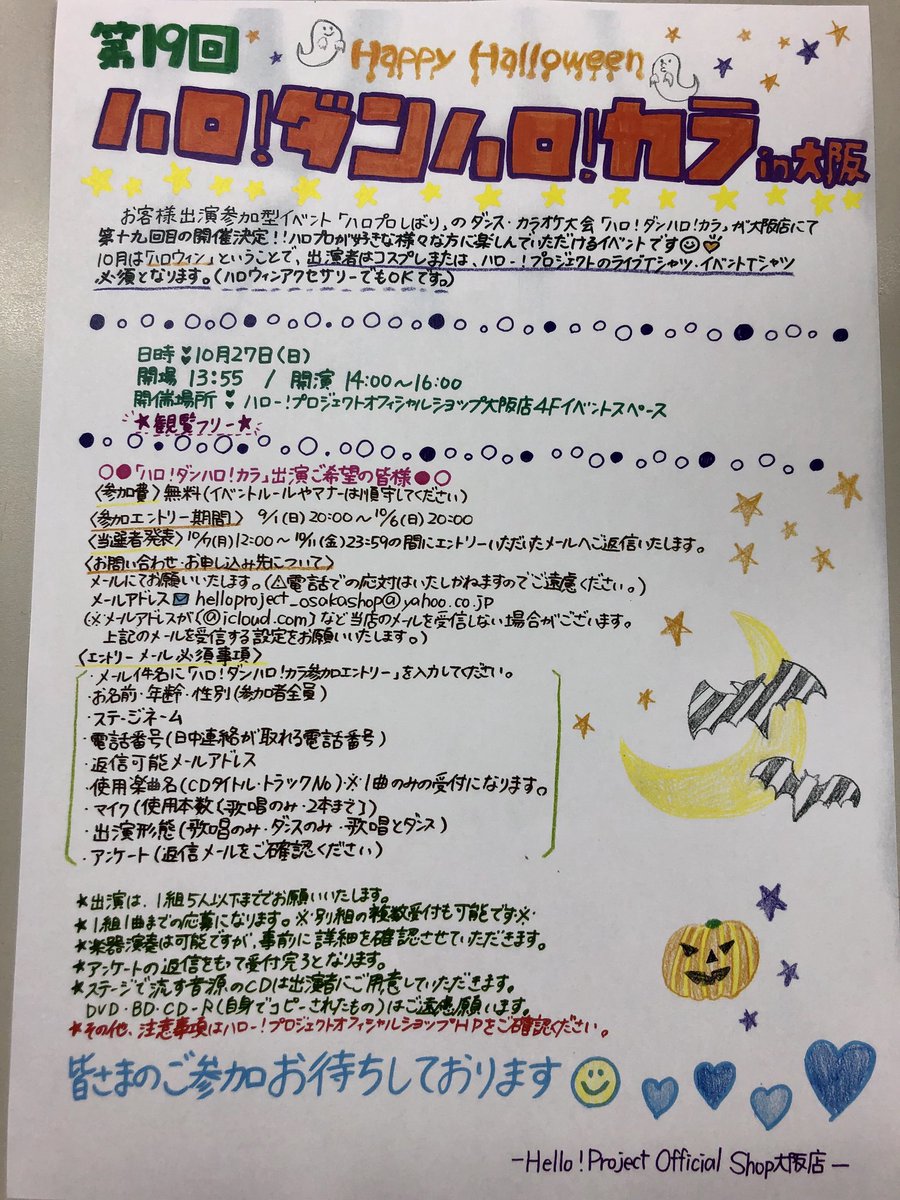 第19回
Happy Halloween
ハロ!ダンハロ!カラ in大阪
お客様出演参加型イベント「ハロプロしばり」のダンス・カラオケ大会「ハロ!ダンハロ!カラ」が大阪店にて
第十九回目の開催決定!!ハロプロが好きな様々な方に楽しんでいただけるイベントです
10月は「ハロウィン」ということで、出演者はコスプレまたは、ハロー!プロジェクトのライブTシャツ・イベントTシャツ
必須となります。(ハロウィンアクセサリーでもOKです。)
日時♥10月27日(日)
開場 13:55 / 開演 14:00~16:00
開催場所♥ハロー!プロジェクトオフィシャルショップ大阪店4Fイベントスペース
★観覧フリー★
○●「ハロ!ダンハロ!カラ」出演ご希望の皆様●○
〈参加費〉無料(イベントルールやマナーは順守してください)
〈参加エントリー期間〉 9/1(日)20:00~10/6(日)20:00
〈当選者発表〉10/7(月)12:00~10/11(金)23:59の間にエントリーいただいたメールへご返信いたします。
〈お問い合わせ・お申し込み先について〉
メールにてお願いいたします。(⚠電話での応対はいたしかねますのでご遠慮ください。)
メールアドレス✉helloproject_osakashop@yahoo.co.jp
(※メールアドレスが〔@icloud.com〕など当店のメールを受信しない場合がございます。
上記のメールを受信する設定をお願いいたします。)
〈エントリーメール必須事項〉
・メール件名に「ハロ!ダンハロ!カラ参加エントリー」を入力してください。
・お名前・年齢・性別(参加者全員)
・ステージネーム
・電話番号(日中連絡が取れる電話番号)
・返信可能メールアドレス
・使用楽曲名(CDタイトル・トラックNo)・※1曲のみの受付になります。
・マイク(使用本数〔歌唱のみ・2本まで〕)
・出演形態(歌唱のみ・ダンスのみ・歌唱とダンス)
・アンケート(返信メールをご確認ください)
★出演は、1組5人以下まででお願いいたします。
★1組1曲までの応募になります。※別組の複数受付も可能です※
★楽器演奏は可能ですが、事前に詳細を確認させていただきます。
★アンケートの返信をもって受付完了となります。
★ステージで流す音源のCDは出演者にご用意していただきます。
DVD・BD・CD-R(自身でコピーされたもの)はご遠慮願います。
★その他、注意事項はハロー!プロジェクトオフィシャルショップHPをご確認ください。
皆さまのご参加お待ちしております
-Hello!Project Official Shop大阪店-